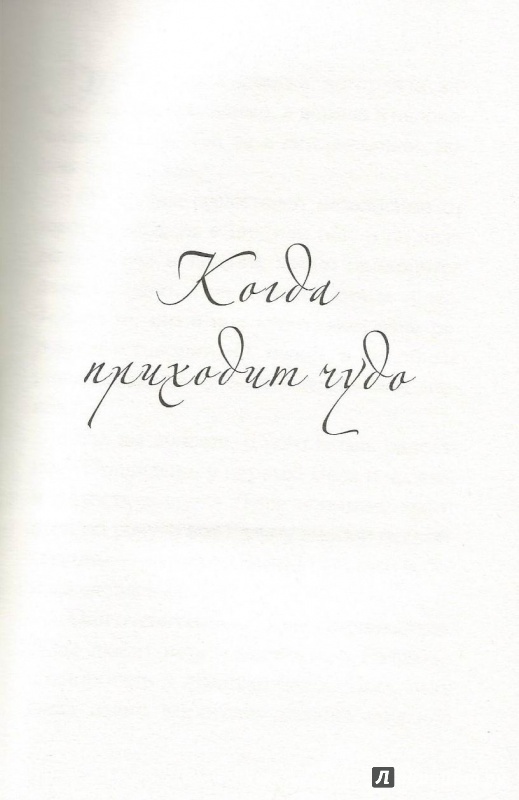 Когда
приходит чудо
Л